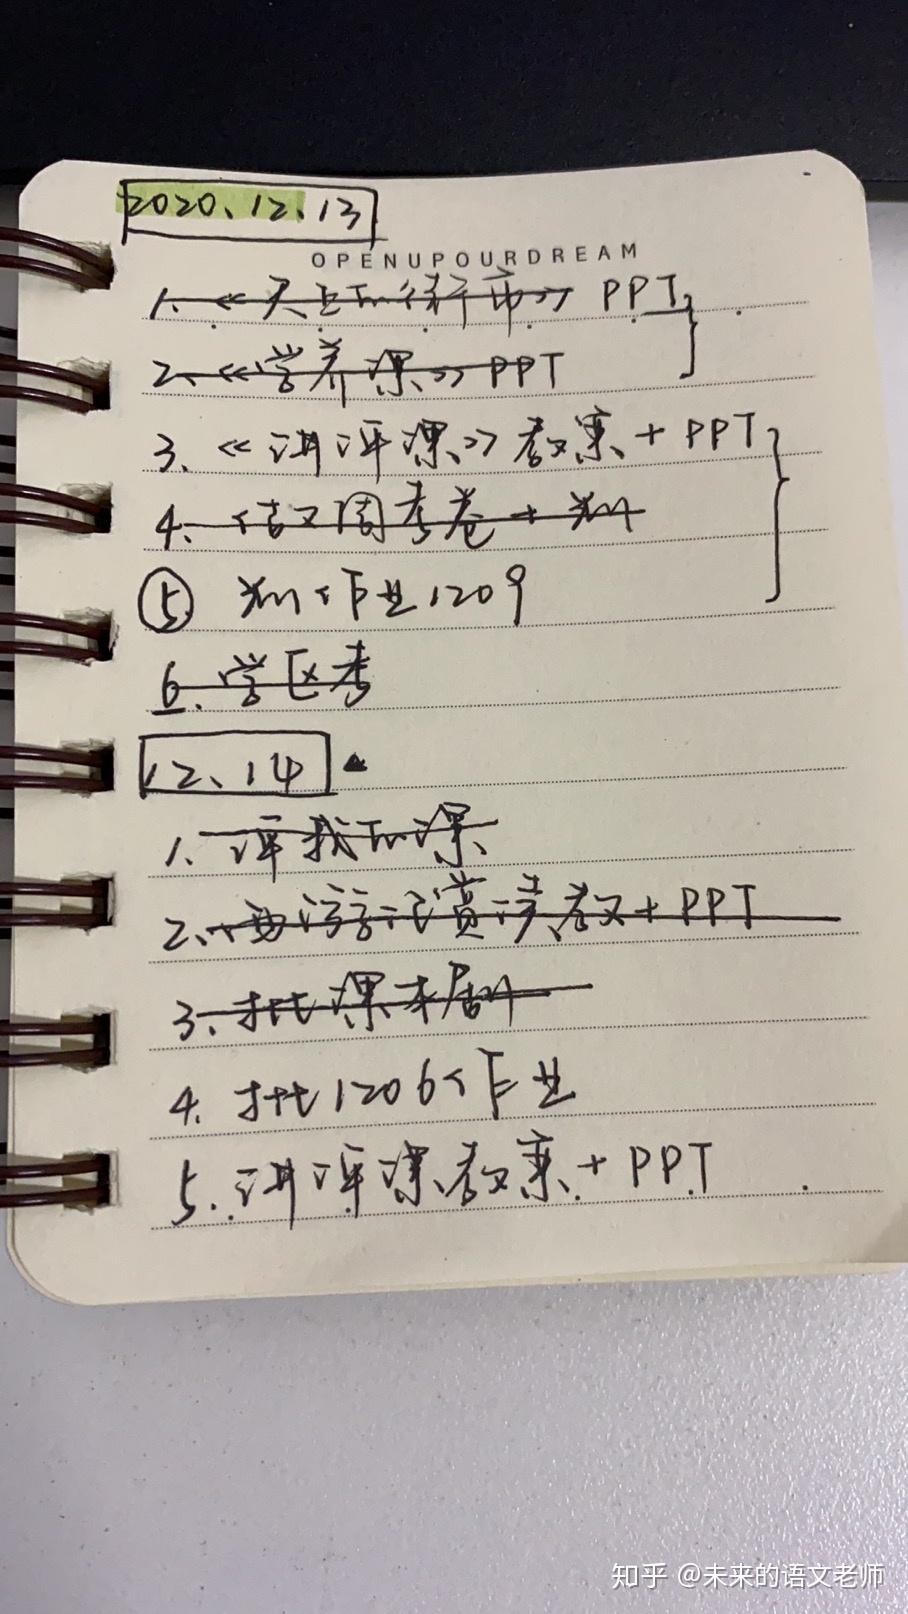 2020.12.13
OPENUPOURDREAM
1.《天上的街市》PPT
2.《学养课》PPT
3.《讲评课》教案+PPT
4. 语文周考卷+
⑤ 作业1209
6. 学区考
12.14
1. 评我的课
2. 西游记赏读教+PPT
3. 批课本剧
4. 批1206作业
5. 讲评课教案+PPT
知乎 @未来的语文老师